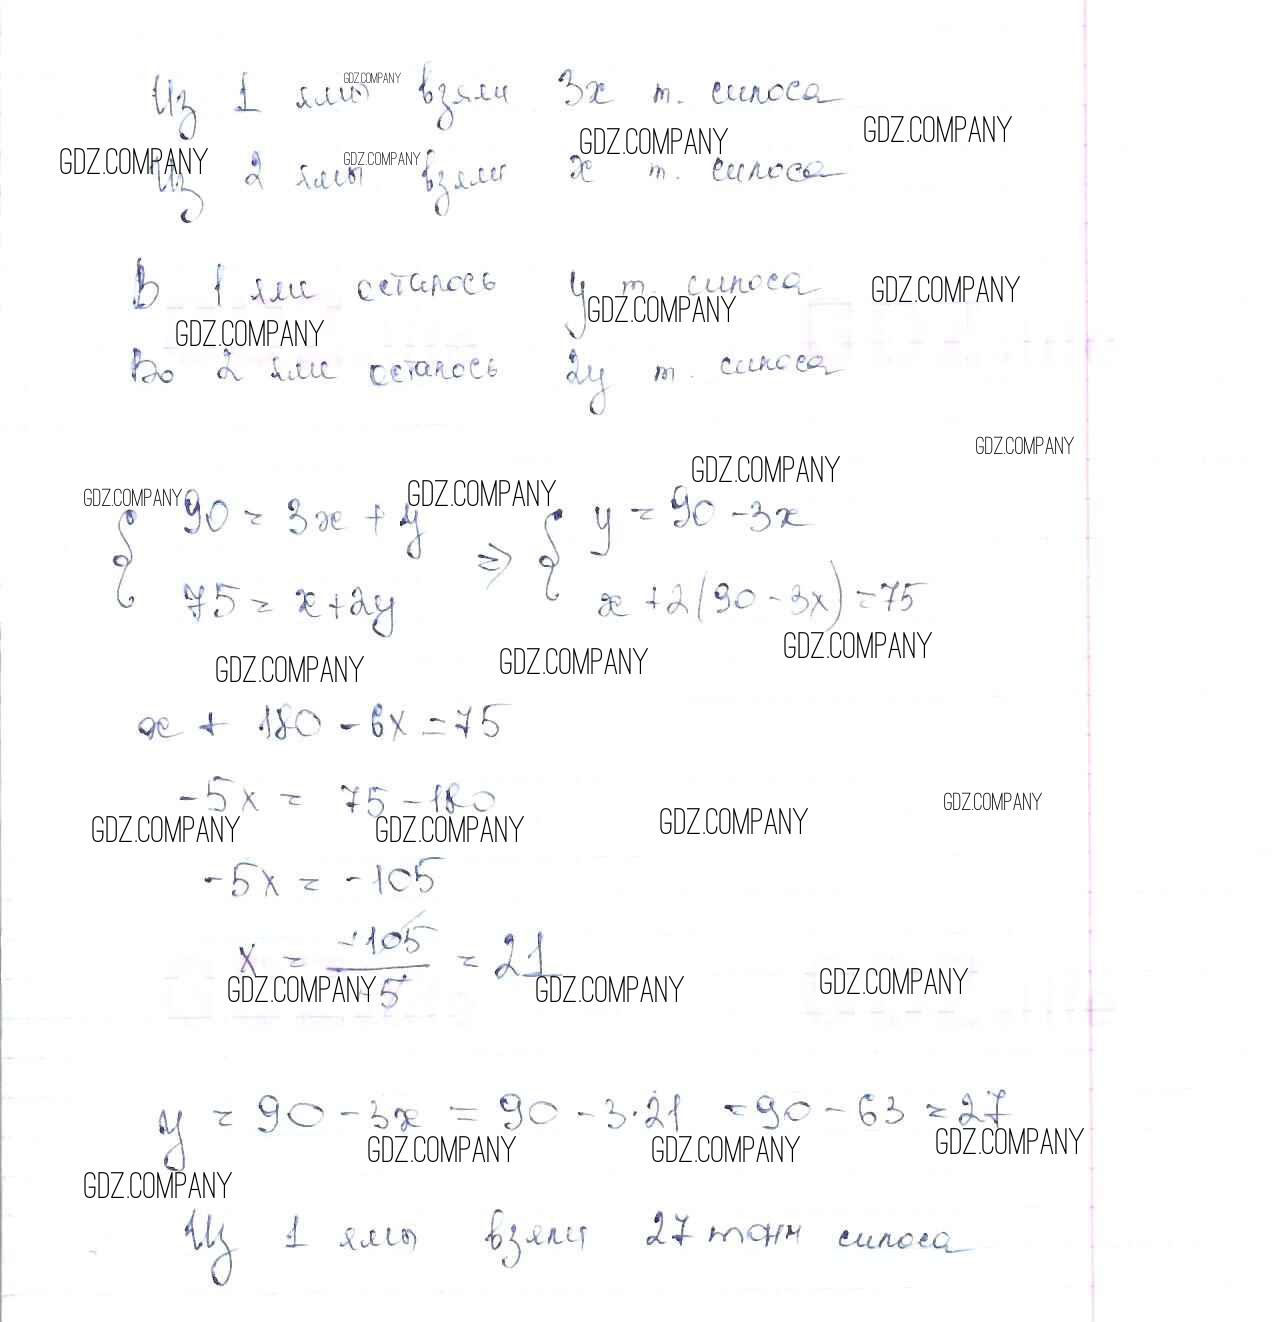 GDZ.COMPANY
Из 1 ямы взяли 3х т. силоса
GDZ.COMPANY GDZ.COMPANY GDZ.COMPANY GDZ.COMPANY
Из 2 ямы взяли х т. силоса
В 1 яме осталось у т. силоса GDZ.COMPANY
GDZ.COMPANY GDZ.COMPANY
Во 2 яме осталось 2у т. силоса
GDZ.COMPANY
GDZ.COMPANY GDZ.COMPANY GDZ.COMPANY
{ 90 = 3x + y ⇒ { y = 90 - 3x
75 = x + 2y x + 2(90 - 3x) = 75
GDZ.COMPANY GDZ.COMPANY GDZ.COMPANY
x + 180 - 6x = 75
-5x = 75 - 180
GDZ.COMPANY GDZ.COMPANY GDZ.COMPANY GDZ.COMPANY
-5x = -105
x = -105/5 = 21
GDZ.COMPANY GDZ.COMPANY GDZ.COMPANY
y = 90 - 3x = 90 - 3·21 = 90 - 63 = 27
GDZ.COMPANY GDZ.COMPANY GDZ.COMPANY
GDZ.COMPANY
Из 1 ямы взяли 27 тонн силоса